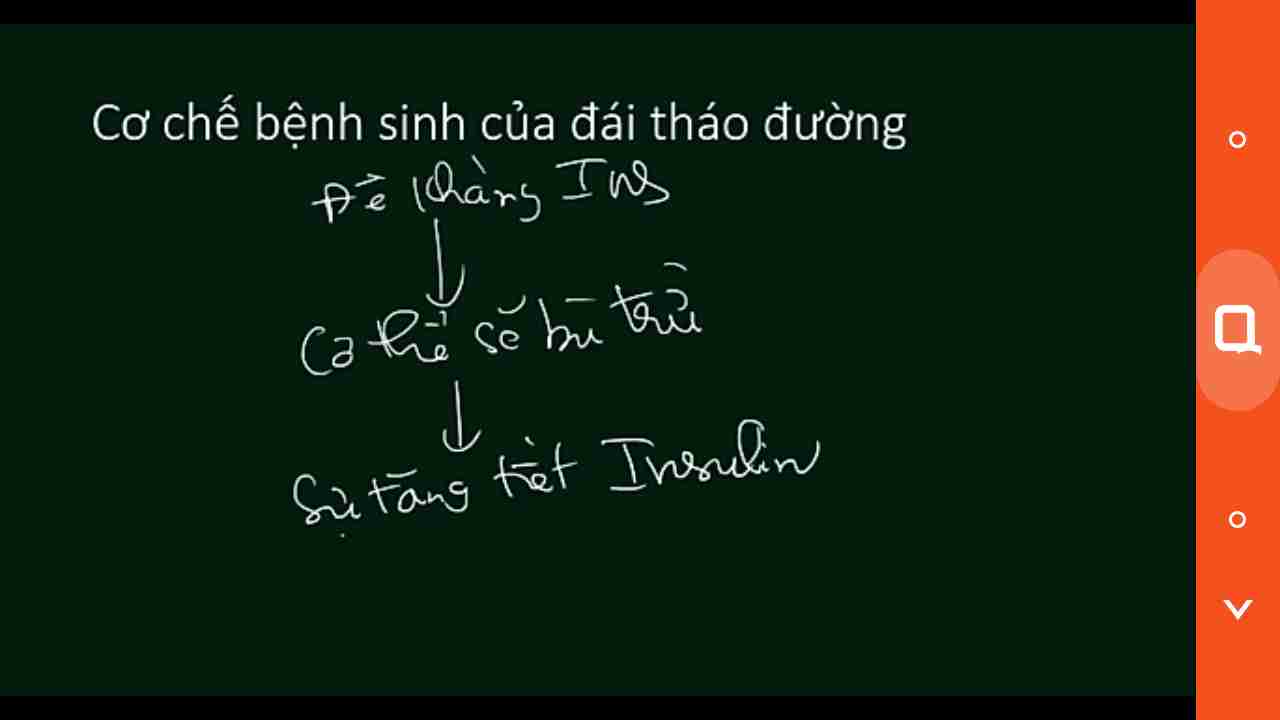 Cơ chế bệnh sinh của đái tháo đường
Đề kháng Ins
Cơ thể sẽ bù trừ
Sự tăng tiết Insulin